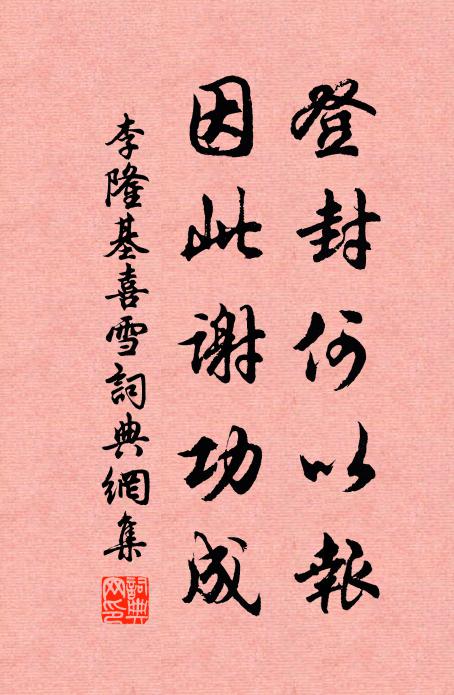 登封何以報
因此謝功成
李隆基喜雪詞典網集
詞典
网印